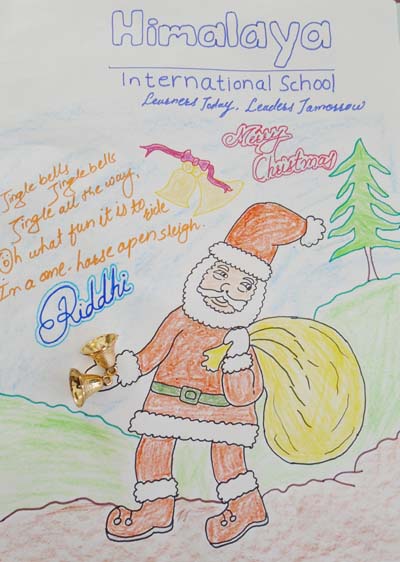 Himalaya
International School
Learners Today, Leaders Tomorrow
Merry
Christmas
Jingle bells
Jingle bells
Jingle all the way,
Oh what fun it is to ride
In a one-horse open sleigh.
Riddhi